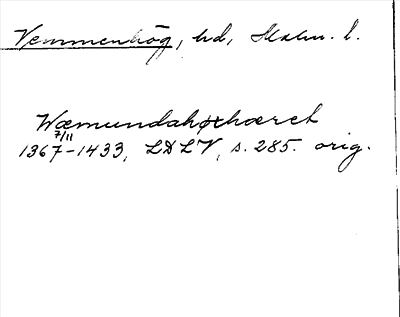 Vemmenhög, hd, Malm. l.
Wæmundahøxhæret
7/11
1367-1433, LDLV, s. 285. orig.